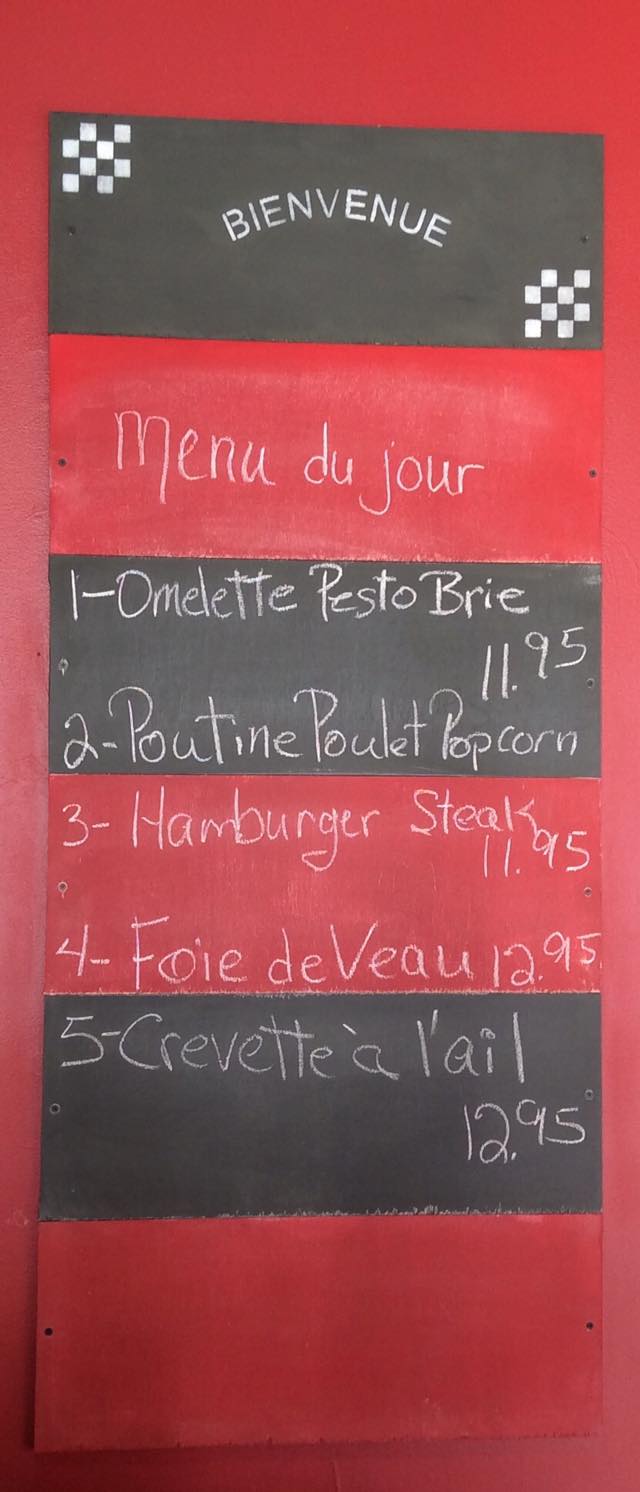 BIENVENUE
Menu du jour
1-Omelette Pesto Brie
11.95
2-Poutine Poulet Popcorn
3- Hamburger Steak
11.95
4- Foie de Veau 12.95
5-Crevette à l'ail
12.95